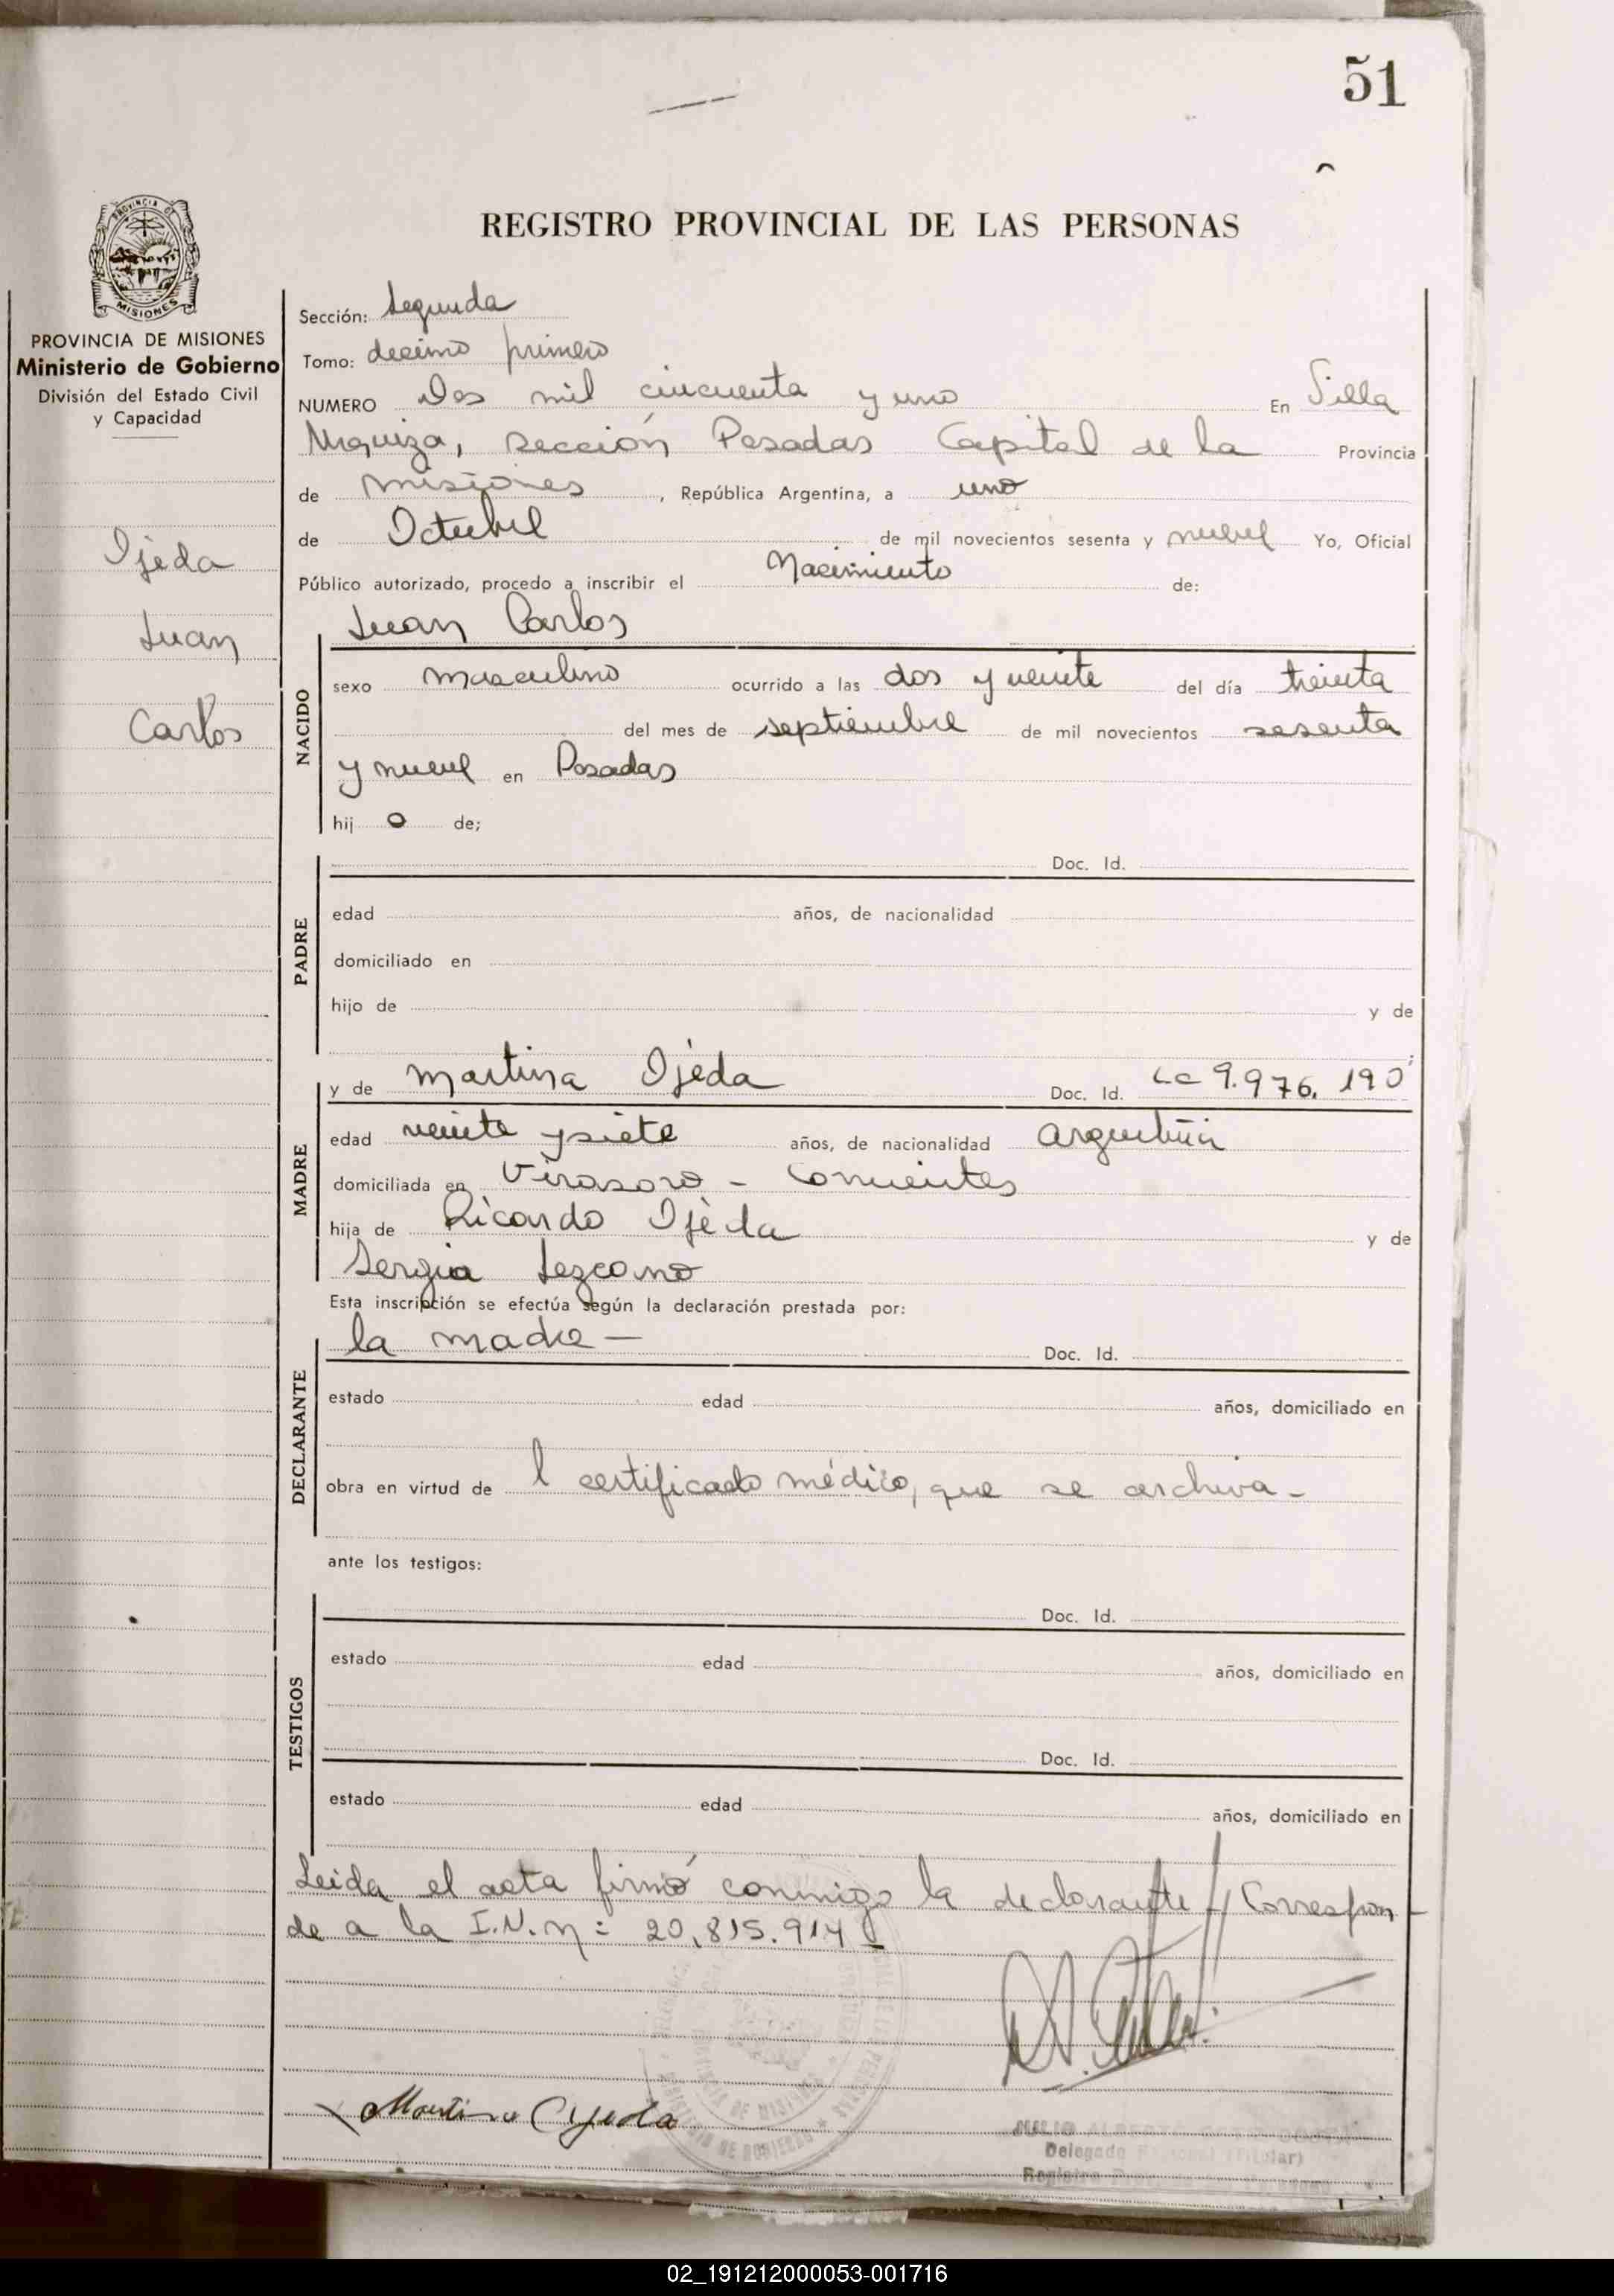 51
REGISTRO PROVINCIAL DE LAS PERSONAS
PROVINCIA DE MISIONES
Ministerio de Gobierno
División del Estado Civil
y Capacidad
Ojeda
Juan
Carlos
Sección: Segunda
Tomo: decimo primero
NUMERO Dos mil cincuenta y uno En Villa
Urquiza, sección Posadas Capital de la Provincia
de misiones, República Argentina, a uno
de Octubre de mil novecientos sesenta y nueve Yo, Oficial
Público autorizado, procedo a inscribir el Nacimiento de:
NACIDO
Juan Carlos
sexo masculino ocurrido a las dos y veinte del día treinta
del mes de septiembre de mil novecientos sesenta
y nueve en Posadas
hij o de;
PADRE
Doc. Id.
edad años, de nacionalidad
domiciliado en
hijo de y de
MADRE
y de Martina Ojeda Doc. Id. LC 9.976.190
edad veinte y siete años, de nacionalidad argentina
domiciliada en Virasoro - Corrientes
hija de Ricardo Ojeda y de
Sergia Lezcano
Esta inscripción se efectúa según la declaración prestada por:
DECLARANTE
la madre — Doc. Id.
estado edad años, domiciliado en
obra en virtud de l certificado médico, que se archiva -
ante los testigos:
TESTIGOS
Doc. Id.
estado edad años, domiciliado en
Doc. Id.
estado edad años, domiciliado en
Leida el acta firmó conmigo la declarante // Correspon
de a la I.N.n: 20.815.914
Martina Ojeda
JULIO ALBERTO
Delegado (Titular)
02_191212000053-001716